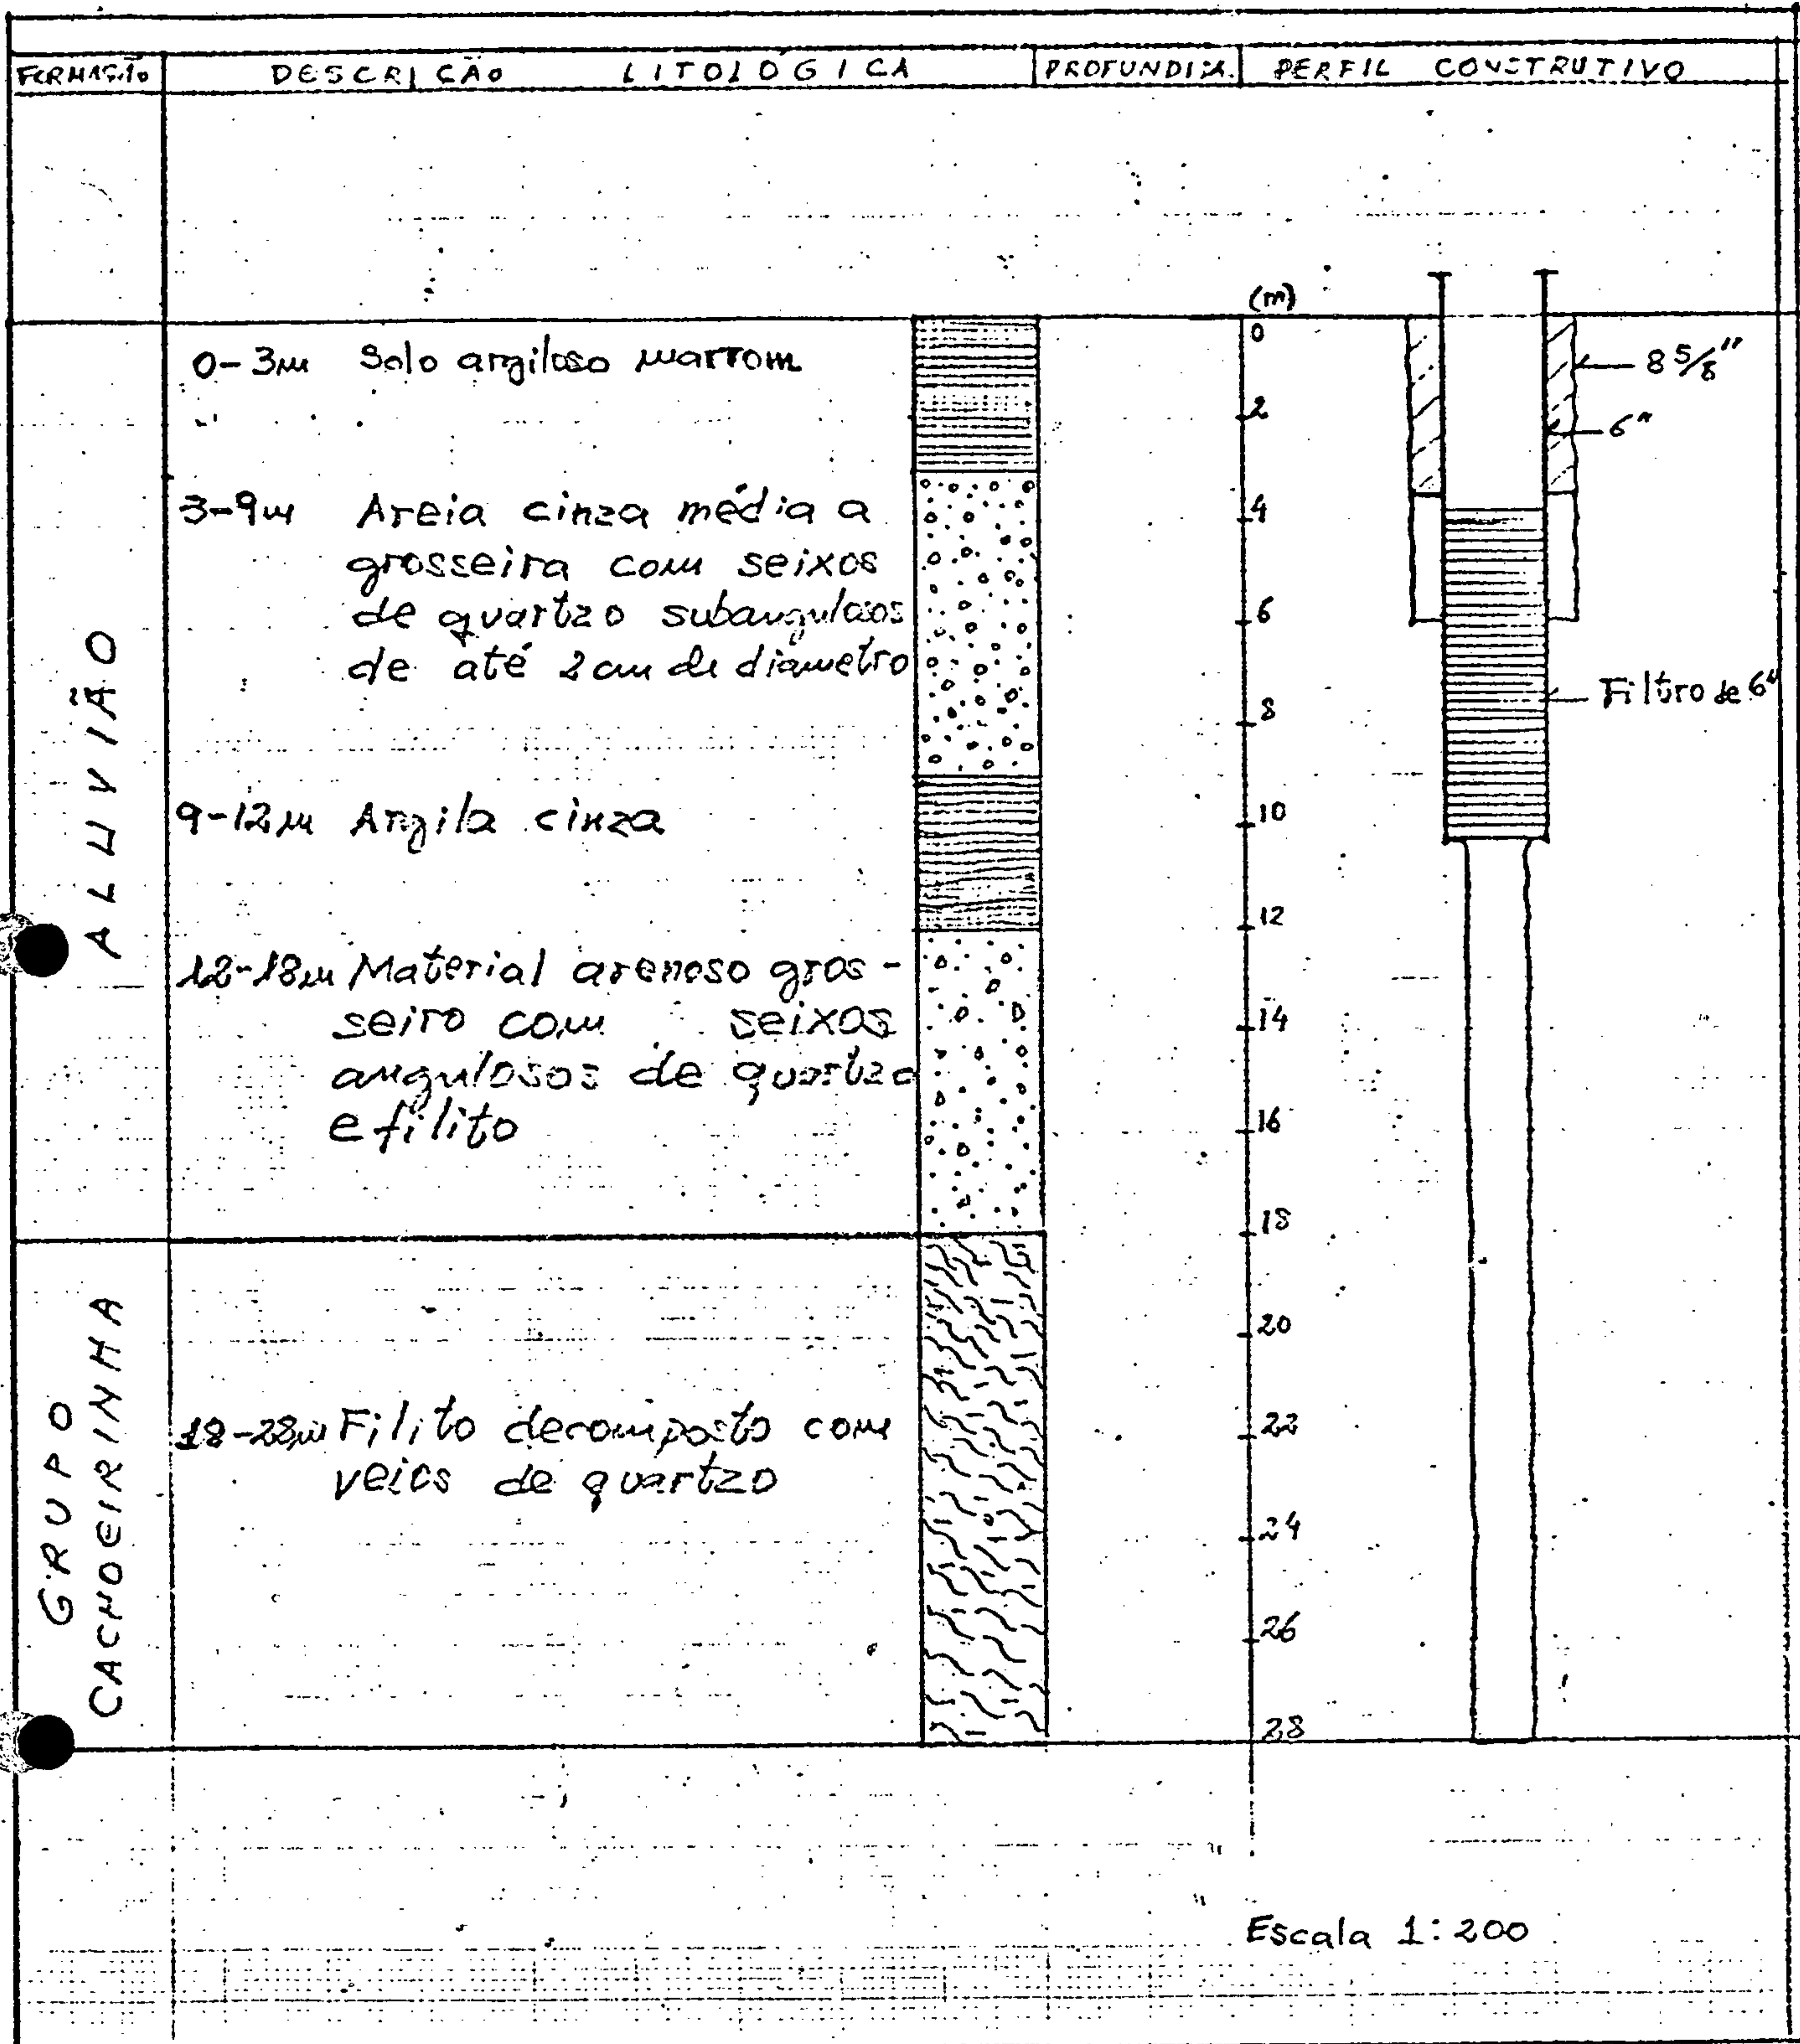 FORMAÇÃO DESCRIÇÃO LITOLÓGICA PROFUNDIDA. PERFIL CONSTRUTIVO
(m)
0
2
4
6
8
10
12
14
16
18
20
22
24
26
28
ALUVIÃO
0-3m Solo argiloso marrom
3-9m Areia cinza média a
grosseira com seixos
de quartzo subangulosos
de até 2 cm de diâmetro
9-12m Argila cinza
12-18m Material arenoso gros-
seiro com seixos
angulosos de quartzo
e filito
GRUPO
CACHOEIRINHA
18-28m Filito decomposto com
veios de quartzo
8 5/8"
6"
Filtro de 6"
Escala 1:200